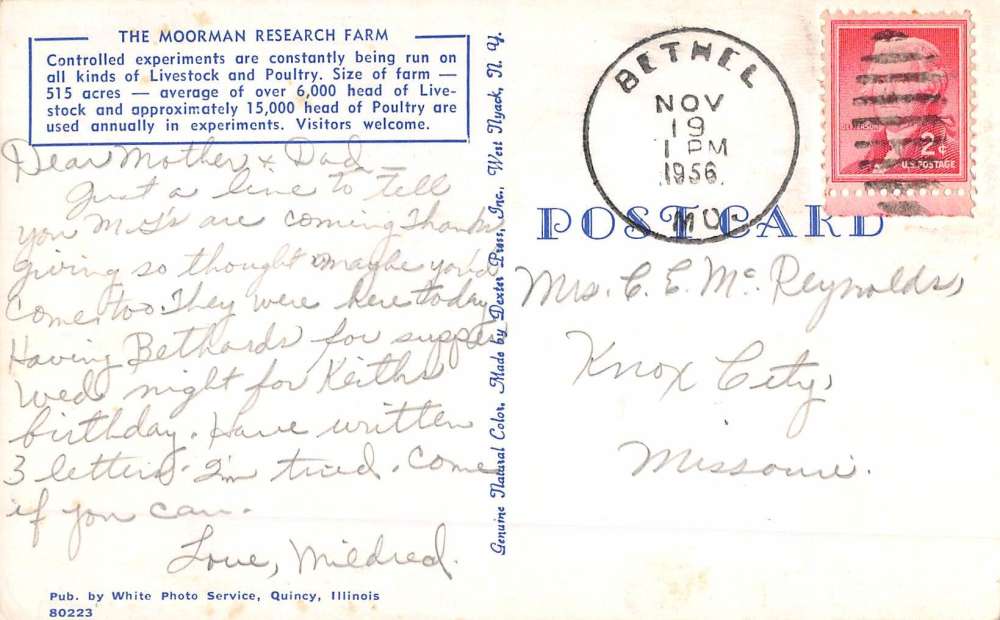 THE MOORMAN RESEARCH FARM
Controlled experiments are constantly being run on
all kinds of Livestock and Poultry. Size of farm —
515 acres — average of over 6,000 head of Live-
stock and approximately 15,000 head of Poultry are
used annually in experiments. Visitors welcome.
Dear Mother & Dad —
Just a line to tell
you M.J's are coming Thanks
giving so thought maybe you'd
come too. They were here today.
Having Bethards for supper
Wed night for Keiths
birthday. Have written
3 letters. I'm tired. Come
if you can.
Love, Mildred.
Pub. by White Photo Service, Quincy, Illinois
80223
Genuine Natural Color. Made by Dexter Press, Inc., West Nyack, N. Y.
BETHEL
NOV
19
1 PM
1956
MO.
JEFFERSON
2¢
U.S. POSTAGE
POST CARD
Mrs. C. E. Mc Reynolds,
Knox City,
Missouri.